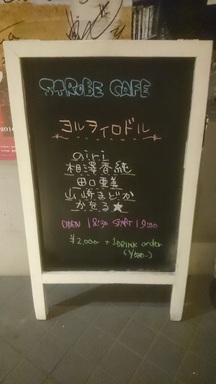 STROBE CAFE
ヨルヲイロドル
相澤香純
田口亜美
山崎まどか
かをる★
OPEN 18:30 START 19:00
¥2,000 + 1DRINK order